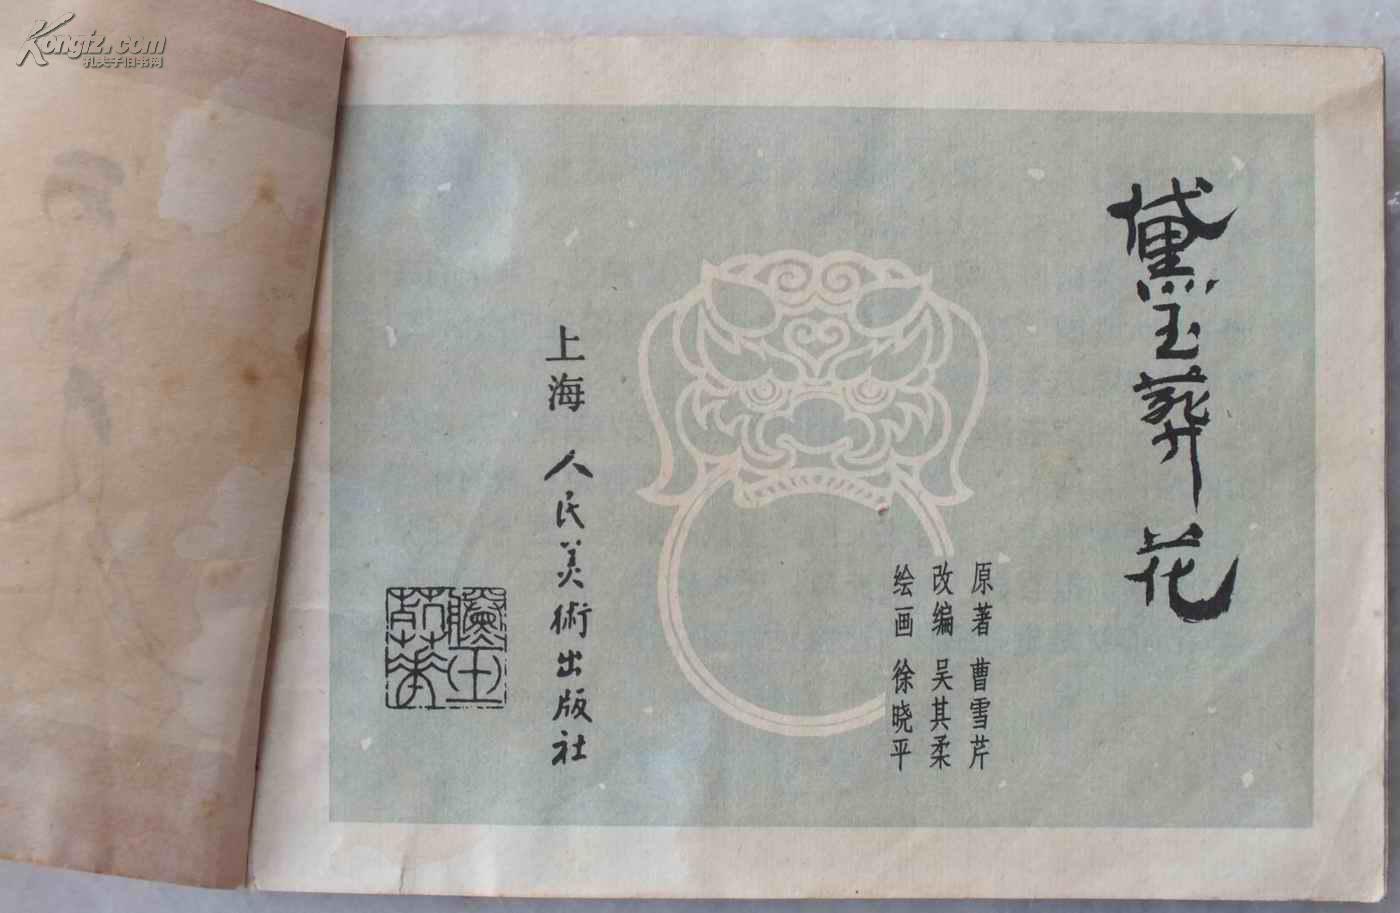 Kongfz.com
孔夫子旧书网
黛玉葬花
原著 曹雪芹
改编 吴其柔
绘画 徐晓平
上海人民美術出版社
黛玉葬花